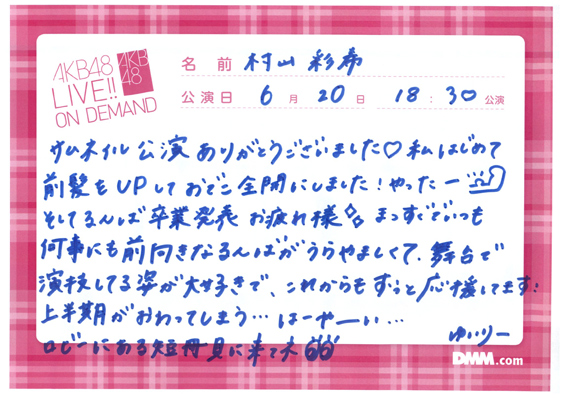 AKB48
LIVE!!
ON DEMAND
AKB
48
名前 村山 彩希
公演日 6月20日 18:30公演
サムネイル公演ありがとうございました♡私はじめて
前髪をUPしておでこ全開にしました!やったー
そしてるんば卒業発表お疲れ様 まっすぐでいつも
何事にも前向きなるんばがうらやましくて、舞台で
演技してる姿が大好きで、これからもずっと応援してます!
上半期がおわってしまう…はーやーい…
ロビーにある短冊見に来て
ゆいりー
DMM.com